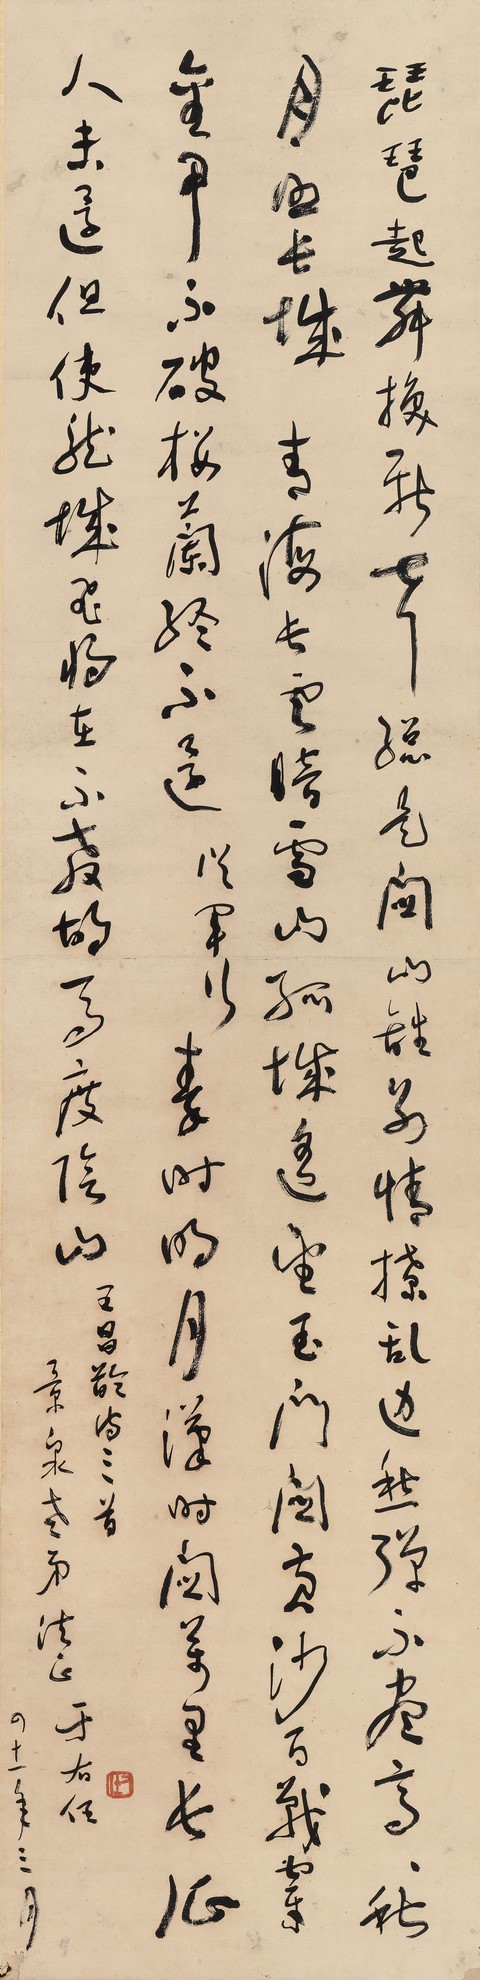 琵琶起舞換新聲總是關山離別情撩乱邊愁彈不盡高〻秋
月照長城 青海長雲暗雪山孤城遙望玉門關黃沙百戰穿
金甲不破樓蘭終不還 從軍行 秦時明月漢時關萬里長征
人未還但使龍城飛將在不教胡馬度陰山 王昌齡詩三首
景泉老弟法正 于右任
四十一年三月